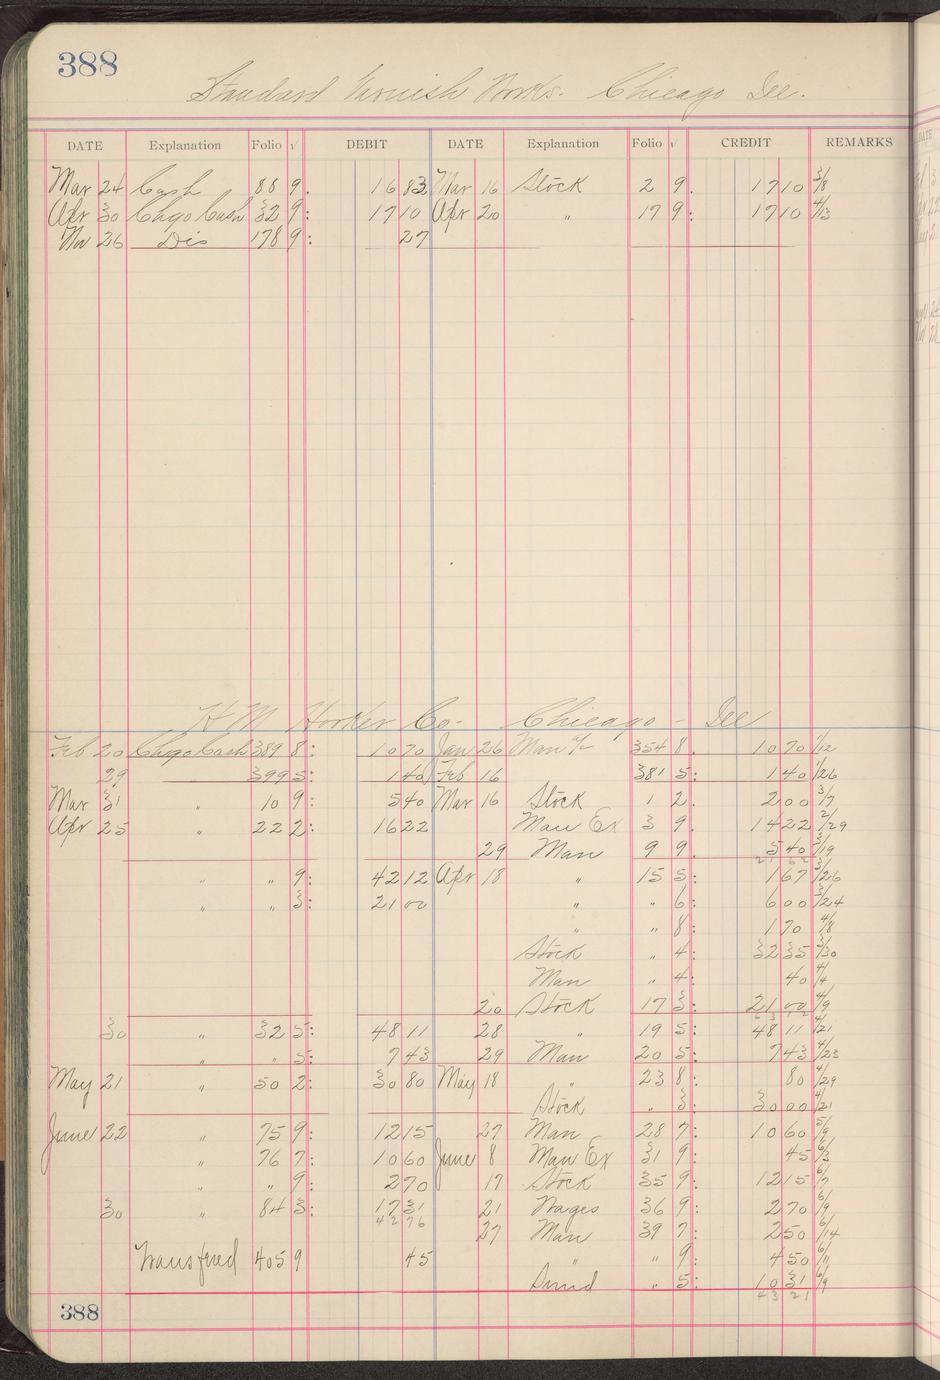 388
Standard Varnish Works. Chicago Ill.
DATE Explanation Folio √ DEBIT DATE Explanation Folio √ CREDIT REMARKS
Mar 24 Cash 88 9. 16 83 Mar 16 Stock 2 9. 17 10 3/8
Apr 30 Chgo Cash 32 9: 17 10 Apr 20 " 17 9: 17 10 4/13
Nov 26 Dis 178 9: 27
H M Hooker Co- Chicago - Ill
Feb 20 Chgo Cash 389 8: 10 70 Jan 26 Man 354 8. 10 70 1/12
29 399 5: 1 40 Feb 16 381 5: 1 40 1/26
Mar 31 " 10 9: 5 40 Mar 16 Stock 1 2. 2 00 3/7
Apr 25 " 22 2: 16 22 Man Ex 3 9. 14 22 2/29
29 Man 9 9. 5 40 3/19
21 62
" " 9: 42 12 Apr 18 " 15 5: 1 67 3/26
" " 3: 21 00 " " 6: 6 00 3/24
" " 8: 1 70 4/8
Stock " 4: 32 35 3/30
Man " 4: 40 4/4
20 Stock 17 3: 21 00 4/9
63 12
30 " 32 5: 48 11 28 " 19 5: 48 11 4/21
" " 5: 7 43 29 Man 20 5: 7 43 4/23
May 21 " 50 2: 30 80 May 18 " 23 8: 80 4/29
Stock " 3: 30 00 4/21
June 22 " 75 9: 12 15 27 Man 28 7: 10 60 5/9
" 76 7: 10 60 June 8 Man Ex 31 9: 45 6/3
" " 9: 2 70 17 Stock 35 9: 12 15 6/7
30 " 84 3: 17 31 21 Wages 36 9: 2 70 6/9
42 76
27 Man 39 7: 2 50 6/14
Transfred 405 9 45 " " 9: 4 50 6/11
" 5: 10 31 6/9
43 21
388